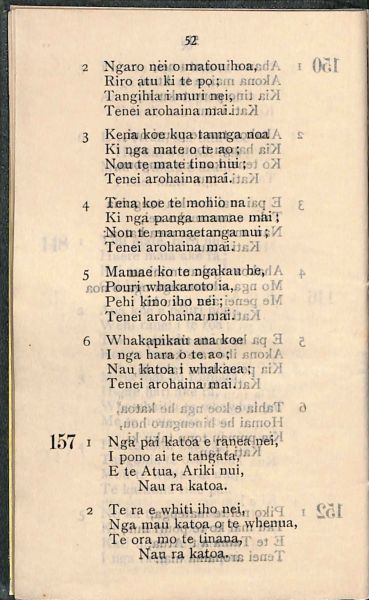 52
2 Ngaro nei o matou hoa,
Riro atu ki te po;
Tangihia i muri nei,
Tenei arohaina mai.
3 Keria koe kua taunga noa
Ki nga mate o te ao;
Nou te mate tino nui;
Tenei arohaina mai.
4 Tena koe te mohio na
Ki nga panga mamae mai;
Nou te mamaetanga nui;
Tenei arohaina mai.
5 Mamae ko te ngakau he,
Pouri whakaroto ia,
Pehi kino iho nei;
Tenei arohaina mai.
6 Whakapikau ana koe
I nga hara o te ao;
Nau katoa i whakaea;
Tenei arohaina mai.
157 1 Nga pai katoa e ranea nei,
I pono ai te tangata,
E te Atua, Ariki nui,
Nau ra katoa.
2 Te ra e whiti iho nei,
Nga mau katoa o te whenua,
Te ora mo te tinana,
Nau ra katoa.